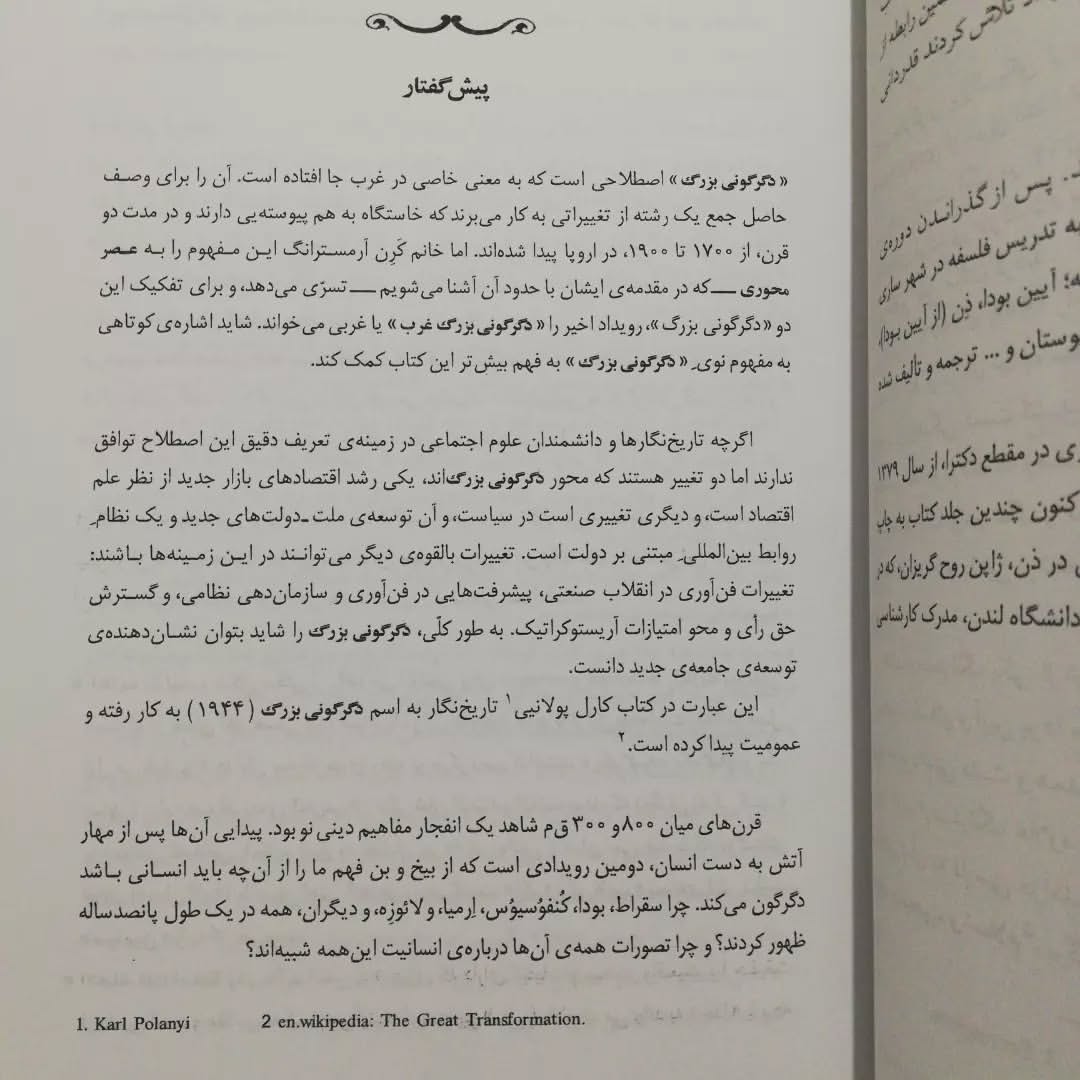 پیش‌گفتار
«دگرگونی بزرگ» اصطلاحی است که به معنی خاصی در غرب جا افتاده است. آن را برای وصف
حاصل جمع یک رشته از تغییراتی به کار می‌برند که خاستگاه به هم پیوسته‌یی دارند و در مدت دو
قرن، از ۱۷۰۰ تا ۱۹۰۰، در اروپا پیدا شده‌اند. اما خانم کَرِن آرمسترانگ این مفهوم را به عصر
محوری ــ که در مقدمه‌ی ایشان با حدود آن آشنا می‌شویم ــ تسرّی می‌دهد، و برای تفکیک این
دو «دگرگونی بزرگ»، رویداد اخیر را «دگرگونی بزرگ غرب» یا غربی می‌خواند. شاید اشاره‌ی کوتاهی
به مفهوم نویِ «دگرگونی بزرگ» به فهم بیش‌تر این کتاب کمک کند.
اگرچه تاریخ‌نگارها و دانشمندان علوم اجتماعی در زمینه‌ی تعریف دقیق این اصطلاح توافق
ندارند اما دو تغییر هستند که محور دگرگونی بزرگ‌اند، یکی رشد اقتصادهای بازار جدید از نظر علم
اقتصاد است، و دیگری تغییری است در سیاست، و آن توسعه‌ی ملت ـ دولت‌های جدید و یک نظامِ
روابط بین‌المللیِ مبتنی بر دولت است. تغییرات بالقوه‌ی دیگر می‌توانند در این زمینه‌ها باشند:
تغییرات فن‌آوری در انقلاب صنعتی، پیشرفت‌هایی در فن‌آوری و سازمان‌دهی نظامی، و گسترش
حق رأی و محو امتیازات آریستوکراتیک. به طور کلّی، دگرگونی بزرگ را شاید بتوان نشان‌دهنده‌ی
توسعه‌ی جامعه‌ی جدید دانست.
این عبارت در کتاب کارل پولانیی۱ تاریخ‌نگار به اسم دگرگونی بزرگ (۱۹۴۴) به کار رفته و
عمومیت پیدا کرده است.۲
قرن‌های میان ۸۰۰ و ۳۰۰ ق‌م شاهد یک انفجار مفاهیم دینی نو بود. پیدایی آن‌ها پس از مهار
آتش به دست انسان، دومین رویدادی است که از بیخ و بن فهم ما را از آن‌چه باید انسانی باشد
دگرگون می‌کند. چرا سقراط، بودا، کُنفوُسیوُس، اِرمیا، و لائوزِه، و دیگران، همه در یک طول پانصدساله
ظهور کردند؟ و چرا تصورات همه‌ی آن‌ها درباره‌ی انسانیت این‌همه شبیه‌اند؟
1. Karl Polanyi 2 en.wikipedia: The Great Transformation.
رابطه از
تلاش کردند قدردانی
پس از گذراندن دوره‌ی
به تدریس فلسفه در شهر ساری
آیین بودا، ذِن (از آیین بودا)،
و ... ترجمه و تألیف شده
در مقطع دکترا، از سال ۱۳۷۹
کنون چندین جلد کتاب به چاپ
در ذن، ژاپن روح گریزان، که در
دانشگاه لندن، مدرک کارشناسی